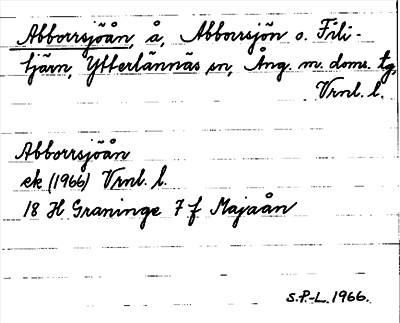 Abborrsjöån, å, Abborrsjön o. Fili-
tjärn, Ytterlännäs sn, Ång. m. doms. tg,
Vrnl. l.
Abborrsjöån
ek (1966) Vrnl. l.
18 H Graninge 7 f Majaån
S.P.-L. 1966.